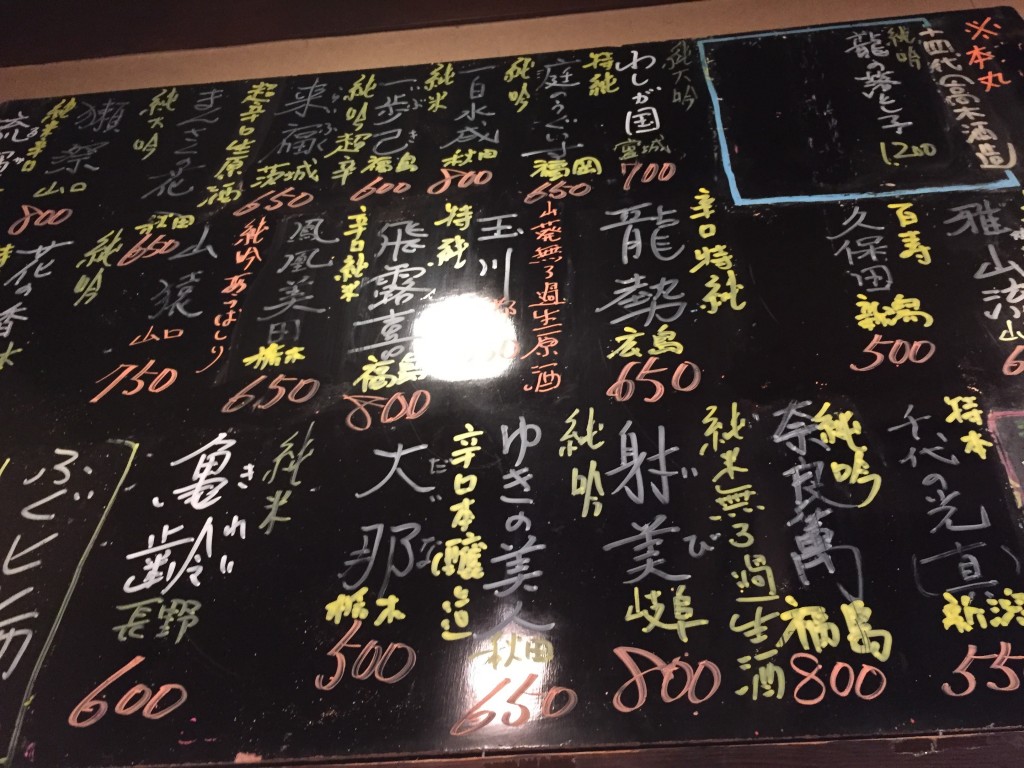 ※本丸
十四代(高木酒造)
純吟
龍の落とし子
1200
純大吟
わしが国
宮城
700
特純
庭のうぐいす
福岡
650
純吟
一白水成
秋田
800
純米
一歩己
いぶき
福島
600
純吟超辛
来福
茨城
650
超辛口生原酒
まんさくの花
秋田
650
純大吟
獺祭
山口
800
純米辛口
雅山流
山
百寿
久保田
新潟
500
辛口特純
龍勢
広島
650
山廃無ろ過生原酒
玉川
特純
飛露喜
福島
800
辛口純米
鳳凰美田
栃木
650
純吟あらばしり
山猿
山口
750
純吟
花の香
特本
千代の光(真)
新潟
55
純吟
奈良萬
福島
800
純米無ろ過生酒
射美
いび
岐阜
800
純吟
ゆきの美人
秋田
650
辛口本醸造
大那
だいな
栃木
500
純米
亀齢
きれい
長野
600